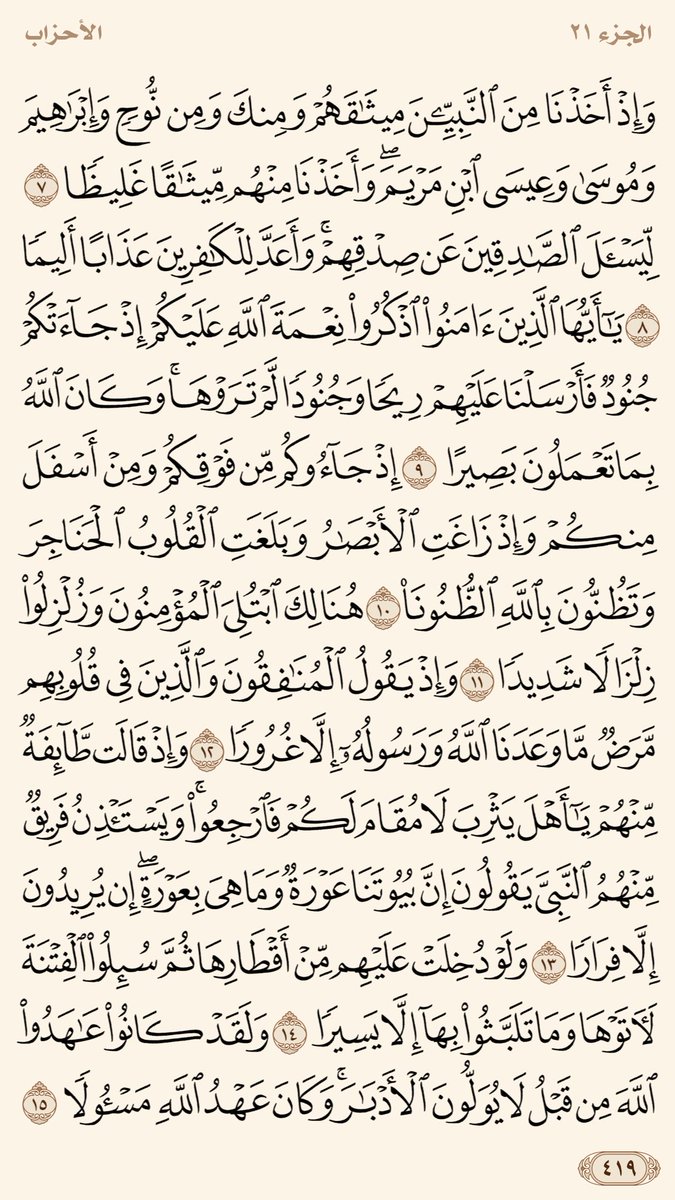 الجزء ٢١
الأحزاب
وَإِذۡ أَخَذۡنَا مِنَ ٱلنَّبِيِّـۧنَ مِيثَٰقَهُمۡ وَمِنكَ وَمِن نُّوحٖ وَإِبۡرَٰهِيمَ
وَمُوسَىٰ وَعِيسَى ٱبۡنِ مَرۡيَمَۖ وَأَخَذۡنَا مِنۡهُم مِّيثَٰقًا غَلِيظٗا ٧
لِّيَسۡـَٔلَ ٱلصَّٰدِقِينَ عَن صِدۡقِهِمۡۚ وَأَعَدَّ لِلۡكَٰفِرِينَ عَذَابًا أَلِيمٗا
٨ يَٰٓأَيُّهَا ٱلَّذِينَ ءَامَنُواْ ٱذۡكُرُواْ نِعۡمَةَ ٱللَّهِ عَلَيۡكُمۡ إِذۡ جَآءَتۡكُمۡ
جُنُودٞ فَأَرۡسَلۡنَا عَلَيۡهِمۡ رِيحٗا وَجُنُودٗا لَّمۡ تَرَوۡهَاۚ وَكَانَ ٱللَّهُ
بِمَا تَعۡمَلُونَ بَصِيرًا ٩ إِذۡ جَآءُوكُم مِّن فَوۡقِكُمۡ وَمِنۡ أَسۡفَلَ
مِنكُمۡ وَإِذۡ زَاغَتِ ٱلۡأَبۡصَٰرُ وَبَلَغَتِ ٱلۡقُلُوبُ ٱلۡحَنَاجِرَ
وَتَظُنُّونَ بِٱللَّهِ ٱلظُّنُونَا۠ ١٠ هُنَالِكَ ٱبۡتُلِيَ ٱلۡمُؤۡمِنُونَ وَزُلۡزِلُواْ
زِلۡزَالٗا شَدِيدٗا ١١ وَإِذۡ يَقُولُ ٱلۡمُنَٰفِقُونَ وَٱلَّذِينَ فِي قُلُوبِهِم
مَّرَضٞ مَّا وَعَدَنَا ٱللَّهُ وَرَسُولُهُۥٓ إِلَّا غُرُورٗا ١٢ وَإِذۡ قَالَت طَّآئِفَةٞ
مِّنۡهُمۡ يَٰٓأَهۡلَ يَثۡرِبَ لَا مُقَامَ لَكُمۡ فَٱرۡجِعُواْۚ وَيَسۡتَـٔۡذِنُ فَرِيقٞ
مِّنۡهُمُ ٱلنَّبِيَّ يَقُولُونَ إِنَّ بُيُوتَنَا عَوۡرَةٞ وَمَا هِيَ بِعَوۡرَةٍۖ إِن يُرِيدُونَ
إِلَّا فِرَارٗا ١٣ وَلَوۡ دُخِلَتۡ عَلَيۡهِم مِّنۡ أَقۡطَارِهَا ثُمَّ سُئِلُواْ ٱلۡفِتۡنَةَ
لَأٓتَوۡهَا وَمَا تَلَبَّثُواْ بِهَآ إِلَّا يَسِيرٗا ١٤ وَلَقَدۡ كَانُواْ عَٰهَدُواْ
ٱللَّهَ مِن قَبۡلُ لَا يُوَلُّونَ ٱلۡأَدۡبَٰرَۚ وَكَانَ عَهۡدُ ٱللَّهِ مَسۡـُٔولٗا ١٥
٤١٩